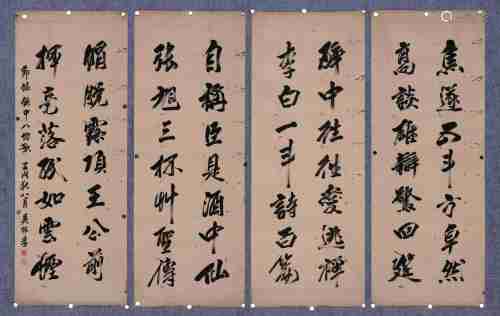 焦遂五斗方卓然
高談雄辯驚四筵
醉中往往愛逃禪
李白一斗詩百篇
自稱臣是酒中仙
張旭三杯艸聖傳
帽脫露頂王公前
揮毫落紙如雲煙
飲中八仙歌 秋八月